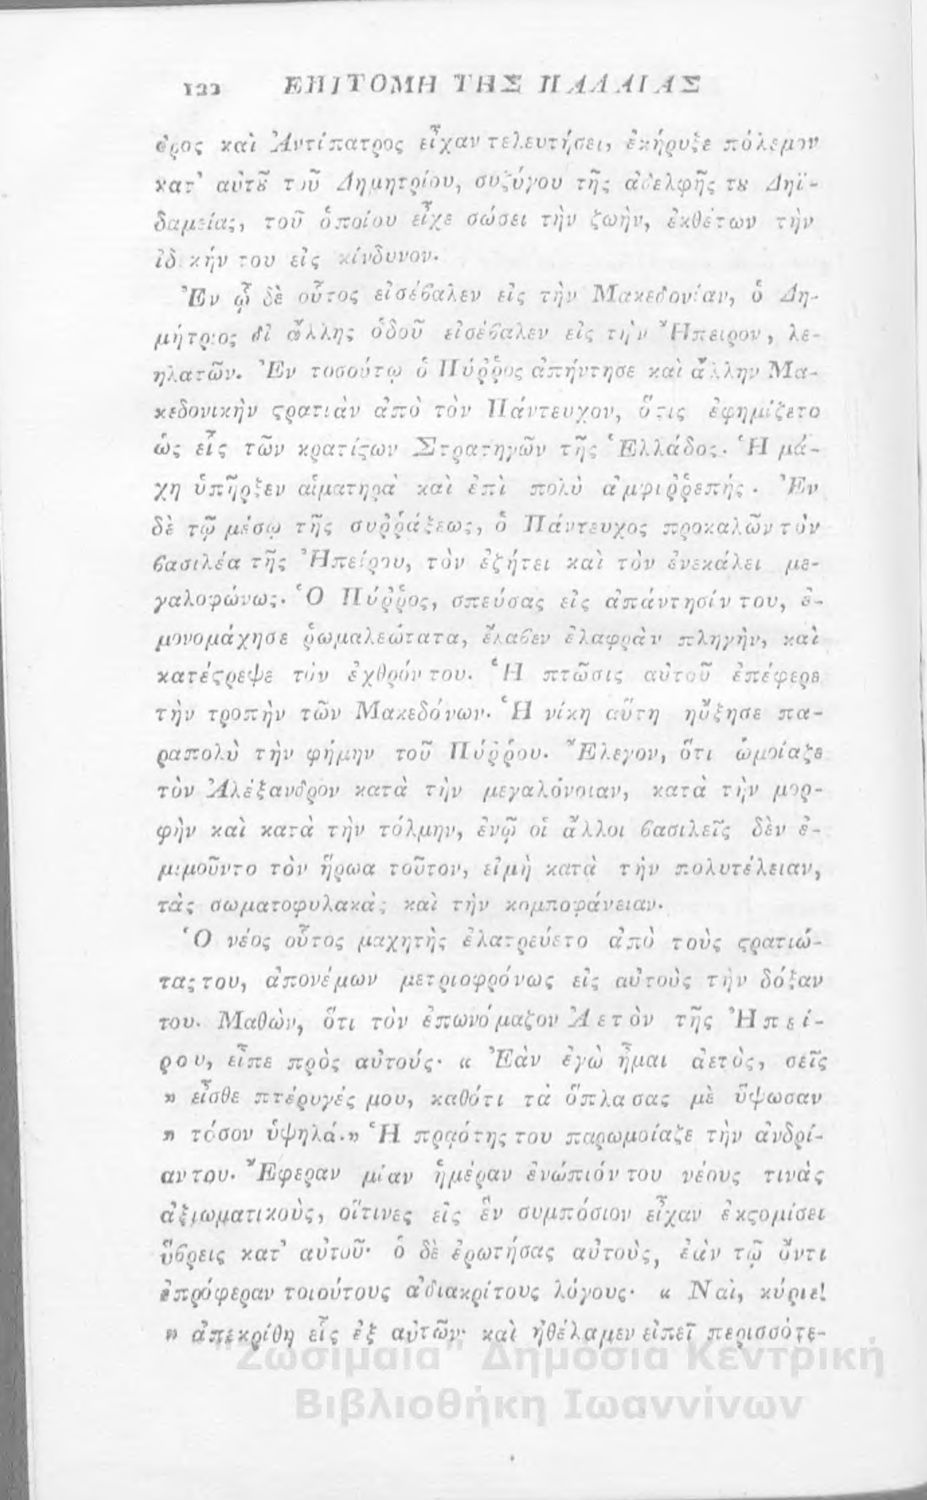 122 ΕΠΙΤΟΜΗ ΤΗΣ ΠΑΛΑΙΑΣ
δρος καὶ Ἀντίπατρος εἶχαν τελευτήσει, ἐκήρυξε πόλεμον
κατ' αὐτȣ͂ τοῦ Δημητρίου, συζύγου τῆς ἀδελφῆς τȣ Δηϊ-
δαμείας, τοῦ ὁποίου εἶχε σώσει τὴν ζωὴν, ἐκθέτων τὴν
ἰδικήν του εἰς κίνδυνον.
Ἐν ᾧ δὲ οὗτος εἰσέβαλεν εἰς τὴν Μακεδονίαν, ὁ Δη-
μήτριος δι ἄλλης ὁδοῦ εἰσέβαλεν εἰς τὴν Ἤπειρον, λε-
ηλατῶν. Ἐν τοσούτῳ ὁ Πύῤῥος ἀπήντησε καὶ ἄλλην Μα-
κεδονικὴν ϛρατιὰν ἀπὸ τὸν Πάντευχον, ὅϛις ἐφημίζετο
ὡς εἷς τῶν κρατίϛων Στρατηγῶν τῆς Ἑλλάδος. Ἡ μά-
χη ὑπῆρξεν αἱματηρὰ καὶ ἐπὶ πολὺ ἀμφιῤῥεπής. Ἐν
δὲ τῷ μέσῳ τῆς συῤῥάξεως, ὁ Πάντευχος προκαλῶν τὸν
βασιλέα τῆς Ἠπείρου, τὸν ἐζήτει καὶ τὸν ἐνεκάλει με-
γαλοφώνως. Ὁ Πύῤῥος, σπεύσας εἰς ἀπάντησίν του, ἐ-
μονομάχησε ῥωμαλεώτατα, ἔλαβεν ἐλαφρὰν πληγὴν, καὶ
κατέϛρεψε τὸν ἐχθρόν του. Ἡ πτῶσις αὐτοῦ ἐπέφερε
τὴν τροπὴν τῶν Μακεδόνων. Ἡ νίκη αὕτη ηὔξησε πα-
ραπολὺ τὴν φήμην τοῦ Πύῤῥου. Ἔλεγον, ὅτι ὡμοίαζε
τὸν Ἀλέξανδρον κατὰ τὴν μεγαλόνοιαν, κατὰ τὴν μορ-
φὴν καὶ κατὰ τὴν τόλμην, ἐνῷ οἱ ἄλλοι βασιλεῖς δὲν ἐ-
μιμοῦντο τὸν ἥρωα τοῦτον, εἰμὴ κατὰ τὴν πολυτέλειαν,
τὰς σωματοφυλακὰς καὶ τὴν κομποφάνειαν.
Ὁ νέος οὗτος μαχητὴς ἐλατρεύετο ἀπὸ τοὺς ϛρατιώ-
τας του, ἀπονέμων μετριοφρόνως εἰς αὐτοὺς τὴν δόξαν
του. Μαθὼν, ὅτι τὸν ἐπωνόμαζον Ἀετὸν τῆς Ἠπεί-
ρου, εἶπε πρὸς αὐτούς· « Ἐὰν ἐγὼ ἦμαι ἀετὸς, σεῖς
» εἶσθε πτέρυγές μου, καθότι τὰ ὅπλα σας μὲ ὕψωσαν
» τόσον ὑψηλά.» Ἡ πραότης του παρωμοίαζε τὴν ἀνδρί-
αν του. Ἔφεραν μίαν ἡμέραν ἐνώπιόν του νέους τινὰς
ἀξιωματικοὺς, οἵτινες εἰς ἓν συμπόσιον εἶχαν ἐκϛομίσει
ὕβρεις κατ' αὐτοῦ· ὁ δὲ ἐρωτήσας αὐτοὺς, ἐὰν τῷ ὄντι
ἐπρόφεραν τοιούτους ἀδιακρίτους λόγους· « Ναὶ, κύριε!
» ἀπεκρίθη εἷς ἐξ αὐτῶν· καὶ ἠθέλαμεν εἰπεῖ περισσότε-
"Ζωσιμαία" Δημόσια Κεντρική
Βιβλιοθήκη Ιωαννίνων